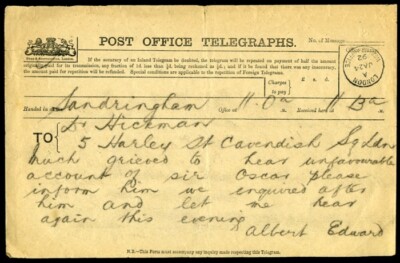 POST OFFICE TELEGRAPHS.
If the accuracy of an Inland Telegram be doubted, the telegram will be repeated on payment of half the amount
originally paid for its transmission, any fraction of 1d. less than ½d. being reckoned as ½d.; and if it be found that there was any inaccuracy,
the amount paid for repetition will be refunded. Special conditions are applicable to the repetition of Foreign Telegrams.
Charges
to pay
£ s. d.
Handed in Sandringham Office at 11.0a Received here at 11.13a
TO Dr Hickman
5 Harley St Cavendish Sq Ldn
much grieved to hear unfavourable
account of sir Oscar please
inform him we enquired after
him and let me hear
again this evening
Albert Edward
N.B.—This Form must accompany any inquiry made respecting this Telegram.
LONDON
A
JA 24
92